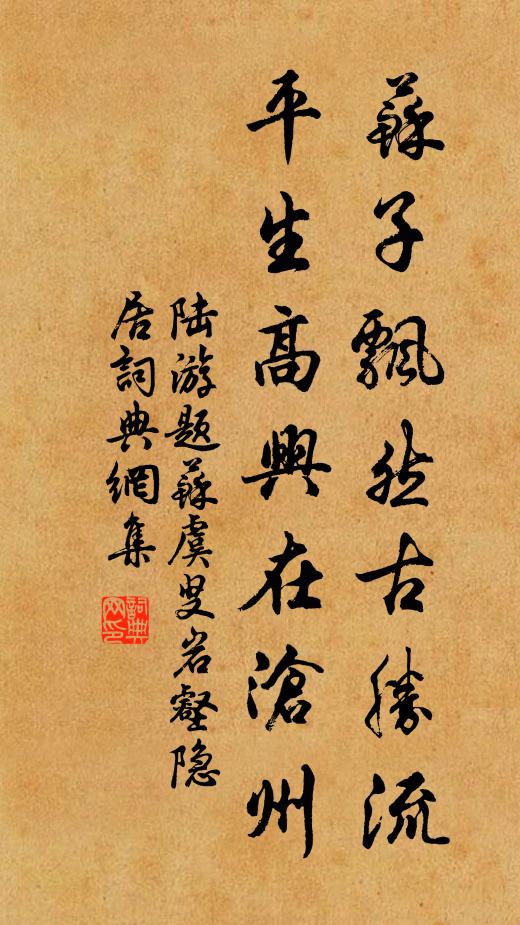 蘇子飄然古勝流
平生高興在滄州
陆游题蘇虞叟岩壑隐
居詞典網集
詞典
网印